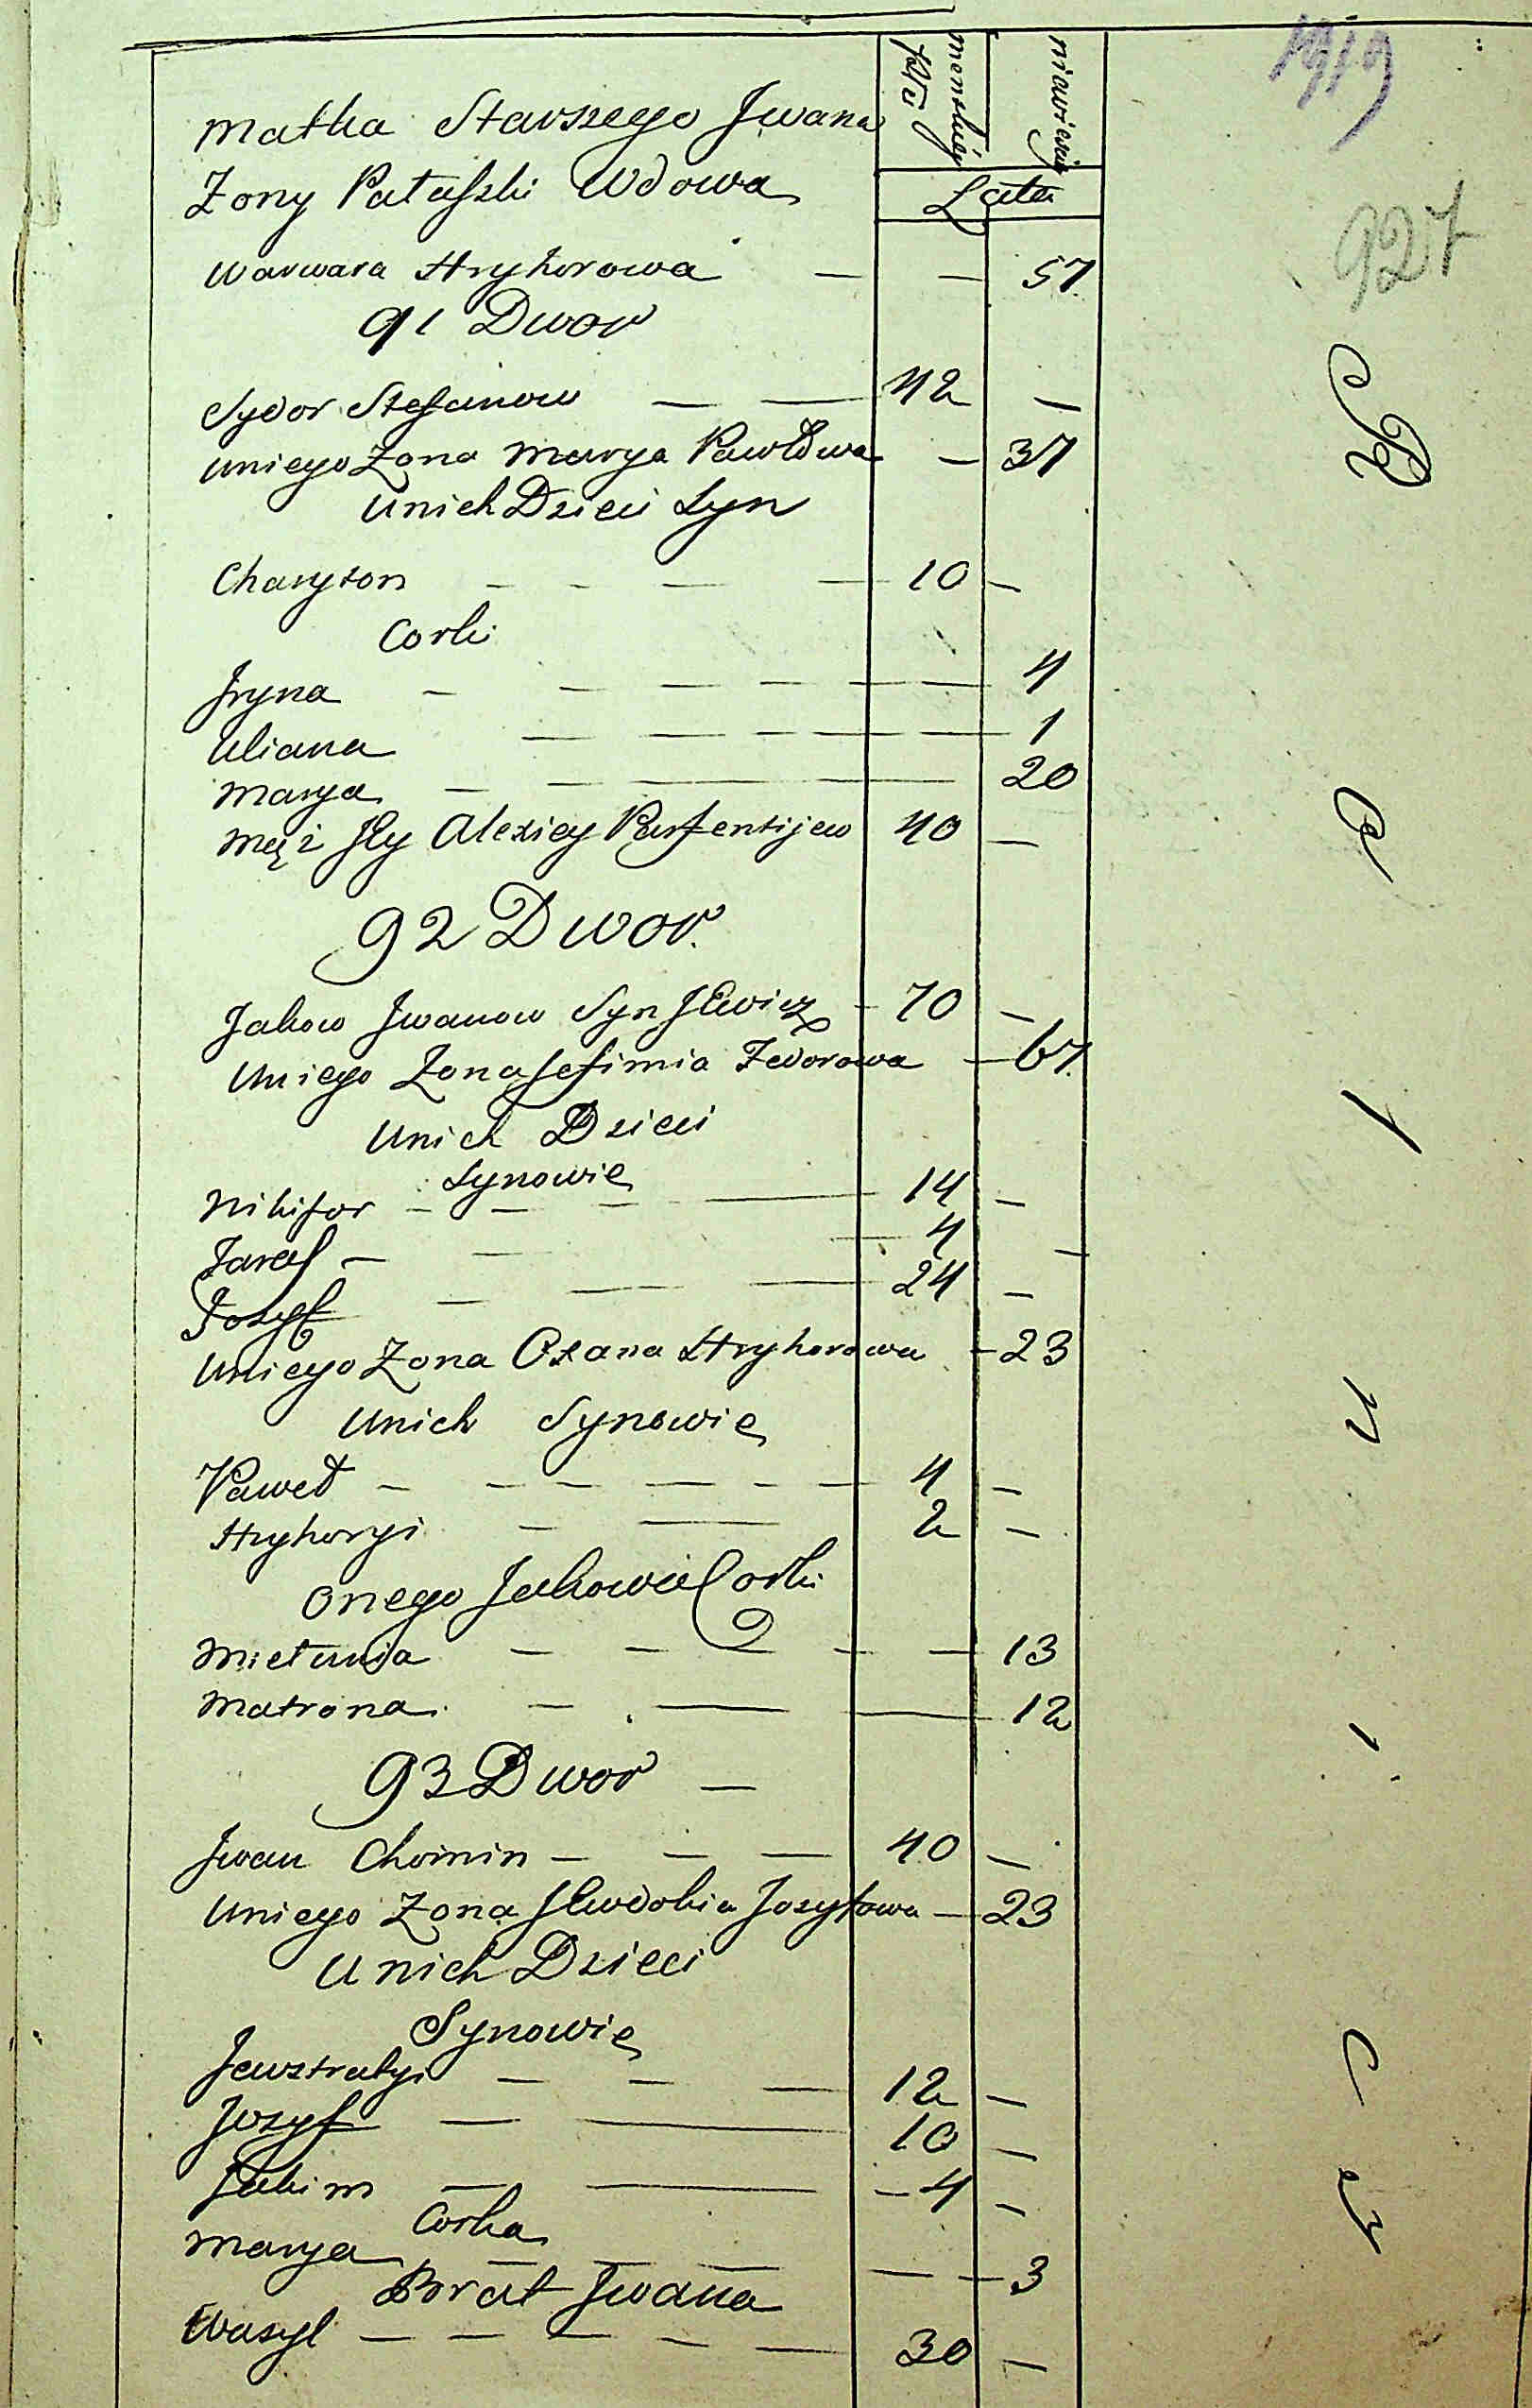 męnskiey
płci
niewiesciey
Lata
1919
927
Matka Starszego Jwana
Zony Pałaszki Wdowa
Warwara Hryhorowa — — 57
91 Dwor
Sydor Stefanow — — 42 —
Uniego Zona Marya Pawłowa — 37
Unich Dzieci Syn
Charyton — — — — 10 —
Corki
Jryna — — — — — — 4
Uliana — — — — — — 1
Marya — — — — 20
Mąż Jey Alexiey Parfentijew 40 —
92 Dwor.
Jakow Jwanow Syn Jlewicz — 70 —
Uniego Zona Jefimia Fedorowa — 67.
Unich Dzieci
Synowie
Nikifor — — — — 14 —
Taras — — — 4 —
Jozyf — — — 24 —
Uniego Zona Oxana Hryhorowa — 23
Unich Synowie
Paweł — — — — — — 4 —
Hryhoryi — — 2 —
Onego Jakowa Corki
— — — — — 13
Matrona — — — 12
93 Dwor —
Jwan Chomin — — — 40 —
Uniego Zona Jewdokia Jozyfowa — 23
Unich Dzieci
Synowie
Jewstratyi — — — 12 —
Jozyf — — 10 —
Jakim — — — 4 —
Corka
Marya — — — — — 3
Brat Jwana
Wasyl — — — — — 30 —